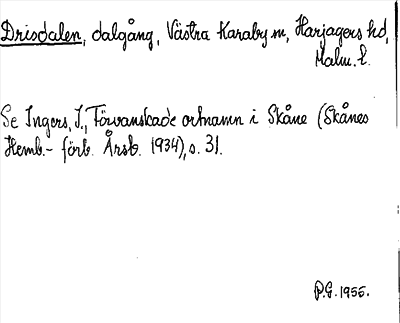 Drisdalen, dalgång, Västra Karaby sn, Harjagers hd,
Malm. l.
Se Ingers, I., Förvanskade ortnamn i Skåne (Skånes
Hemb.- förb. Årsb. 1934), s. 31.
P.G. 1955.